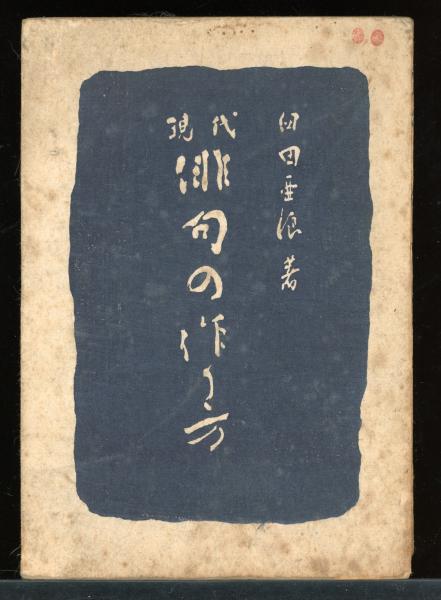 臼田亜浪著
現代
俳句の作り方